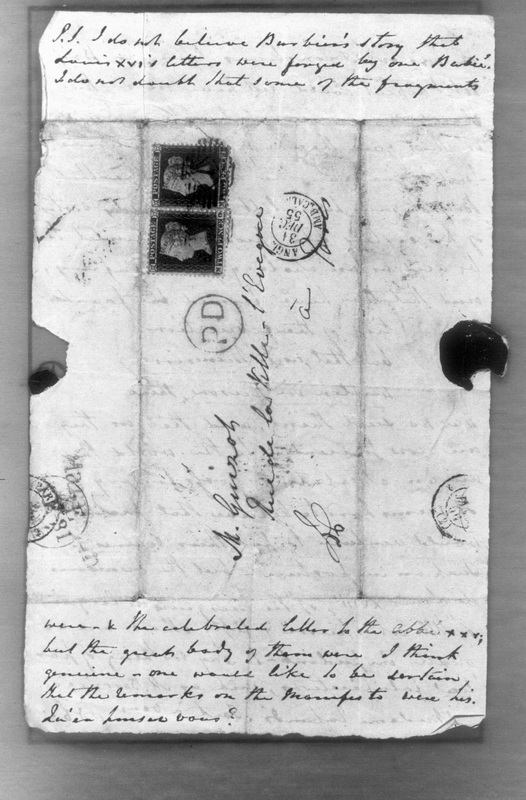 P.S. I do not believe Barbier's story that
Louis xvi's letters were forged by one Babié.
I do not doubt that some of the fragments
POSTAGE
POSTAGE
ANGL.
31
DEC
55
AMB.CALAIS
PD
M. Guizot
Rue de la Ville-l'Eveque
à Paris
were - & the celebrated letter to the abbé xxx;
but the great body of them were I think
genuine - one would like to be certain
that the remarks on the Manifesto were his.
Qu'en pensez vous?